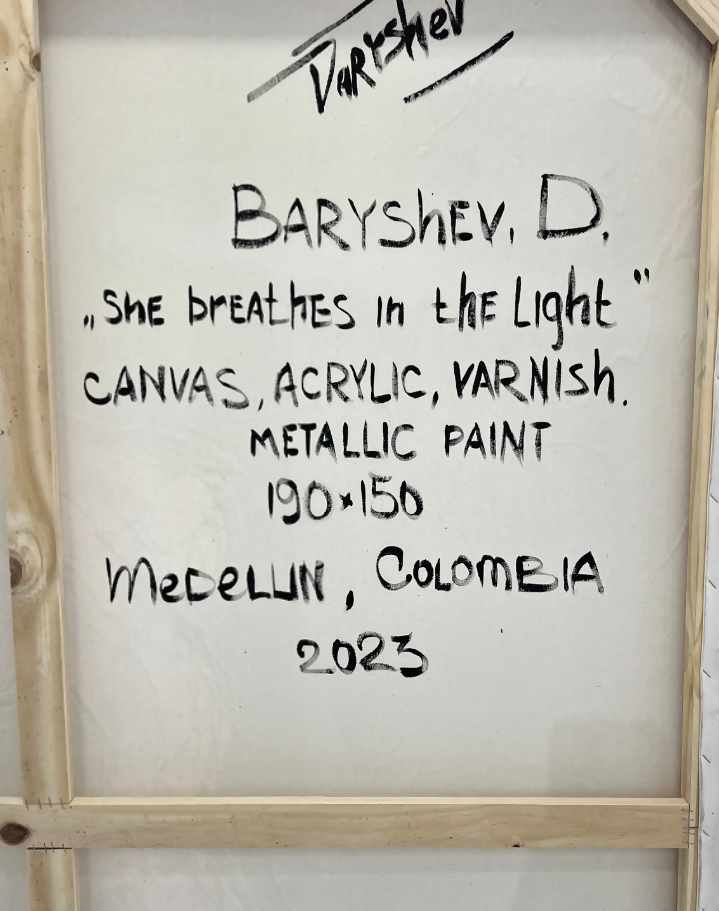 Baryshev
BARYShEV. D.
„ShE brEAthES in thE Light"
CANVAS, ACRYLIC, VARNISh.
METALLIC PAINT
190×150
MeDeLLIN, COLOMBIA
2023